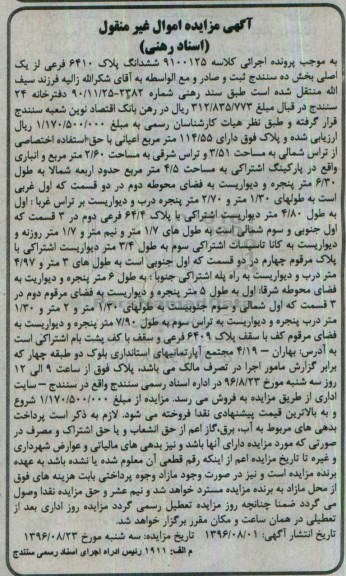 آگهی مزایده اموال غیر منقول
(اسناد رهنی)
به موجب پرونده اجرائی کلاسه ۹۱۰۰۱۲۵ ششدانگ پلاک ۶۴۱۰ فرعی از یک
اصلی بخش ده سنندج ثبت و صادر و مع الواسطه به آقای شکرالله زالیه فرزند سیف
الله منتقل شده است طبق سند رهنی شماره ۲۳۸۲-۹۰/۱۱/۲۵ دفترخانه ۲۴
سنندج در قبال مبلغ ۳۱۲/۸۳۵/۷۷۳ ریال در رهن بانک اقتصاد نوین شعبه سنندج
قرار گرفته و طبق نظر هیات کارشناسان رسمی به مبلغ ۱/۱۷۰/۵۰۰/۰۰۰ ریال
ارزیابی شده و پلاک فوق دارای ۱۱۴/۵۵ متر مربع اعیانی با حق استفاده اختصاصی
از تراس شمالی به مساحت ۳/۵۱ و تراس شرقی به مساحت ۲/۶۰ متر مربع و انباری
واقع در پارکینگ اشتراکی به مساحت ۴/۵ متر مربع حدود اربعه شمالا به طول
۶/۳۰ متر پنجره و دیواریست به فضای محوطه دوم در دو قسمت که اول غربی
است به طولهای ۱/۳۰ متر و ۲/۷۰ متر پنجره درب و دیواریست بر تراس غربا : اول
به طول ۴/۸۰ متر دیواریست اشتراکی با پلاک ۶۴/۴ فرعی دوم در ۳ قسمت که
اول جنوبی و سوم شمالی است به طول های ۱/۷ متر و نیم متر و ۱/۷ متر روزنه و
دیواریست به کانا تاسیسات اشتراکی سوم به طول ۳/۴ متر دیواریست اشتراکی با
پلاک مرقوم چهارم در دو قسمت که اول جنوبی است به طول های ۳ متر و ۴/۹۷
متر درب و دیواریست به راه پله اشتراکی جنوبا : به طول ۶ متر پنجره و دیواریت به
فضای محوطه شرقا: اول به طول ۵ متر پنجره و دیواریست به فضای مرقوم دوم در
۳ قسمت که اول شمالی و سوم جنوبیست به طولهای ۱/۳۰ متر و ۲ متر و ۱/۳۰
متر درب پنجره و دیواریست به تراس سوم به طول ۷/۹۰ متر پنجره و دیواریست به
فضای مرقوم کف با سقف پلاک ۶۴۰۹ فرعی و سقف با کف پشت بام اشتراکی است
به آدرس: بهاران – ۴/۱۹ مجتمع آپارتمانیهای استانداری بلوک دو طبقه چهار که
برابر گزارش مامور اجرا در تصرف مالک می باشد، پلاک فوق از ساعت ۹ الی ۱۲
روز سه شنبه مورخ ۹۶/۸/۲۳ در اداره اسناد رسمی سنندج واقع در سنندج – سایت
اداری از طریق مزایده به فروش می رسد. مزایده از مبلغ ۱/۱۷۰/۵۰۰/۰۰۰ شروع
و به بالاترین قیمت پیشنهادی نقدا فروخته می شود. لازم به ذکر است پرداخت
بدهی های مربوط به آب، برق،گاز اعم از حق انشعاب و یا حق اشتراک و مصرف در
صورتی که مورد مزایده دارای آنها باشد و نیز بدهی های مالیاتی و عوارض شهرداری
و غیره تا تاریخ مزایده اعم از اینکه رقم قطعی آن معلوم شده یا نشده باشد به عهده
برنده مزایده است و نیز در صورت وجود مازاد وجوه پرداختی بابت هزینه های فوق
از محل مازاد به برنده مزایده مسترد خواهد شد و نیم عشر و حق مزایده نقدا وصول
می گردد ضمنا چنانچه روز مزایده تعطیل رسمی گردد مزایده روز اداری بعد از
تعطیلی در همان ساعت و مکان مقرر برگزار خواهد شد.
تاریخ انتشار آگهی: ۱۳۹۶/۰۸/۰۱ تاریخ مزایده: سه شنبه مورخ ۱۳۹۶/۰۸/۲۳
م الف: ۱۹۱۱ رئیس اداره اجرای اسناد رسمی سنندج